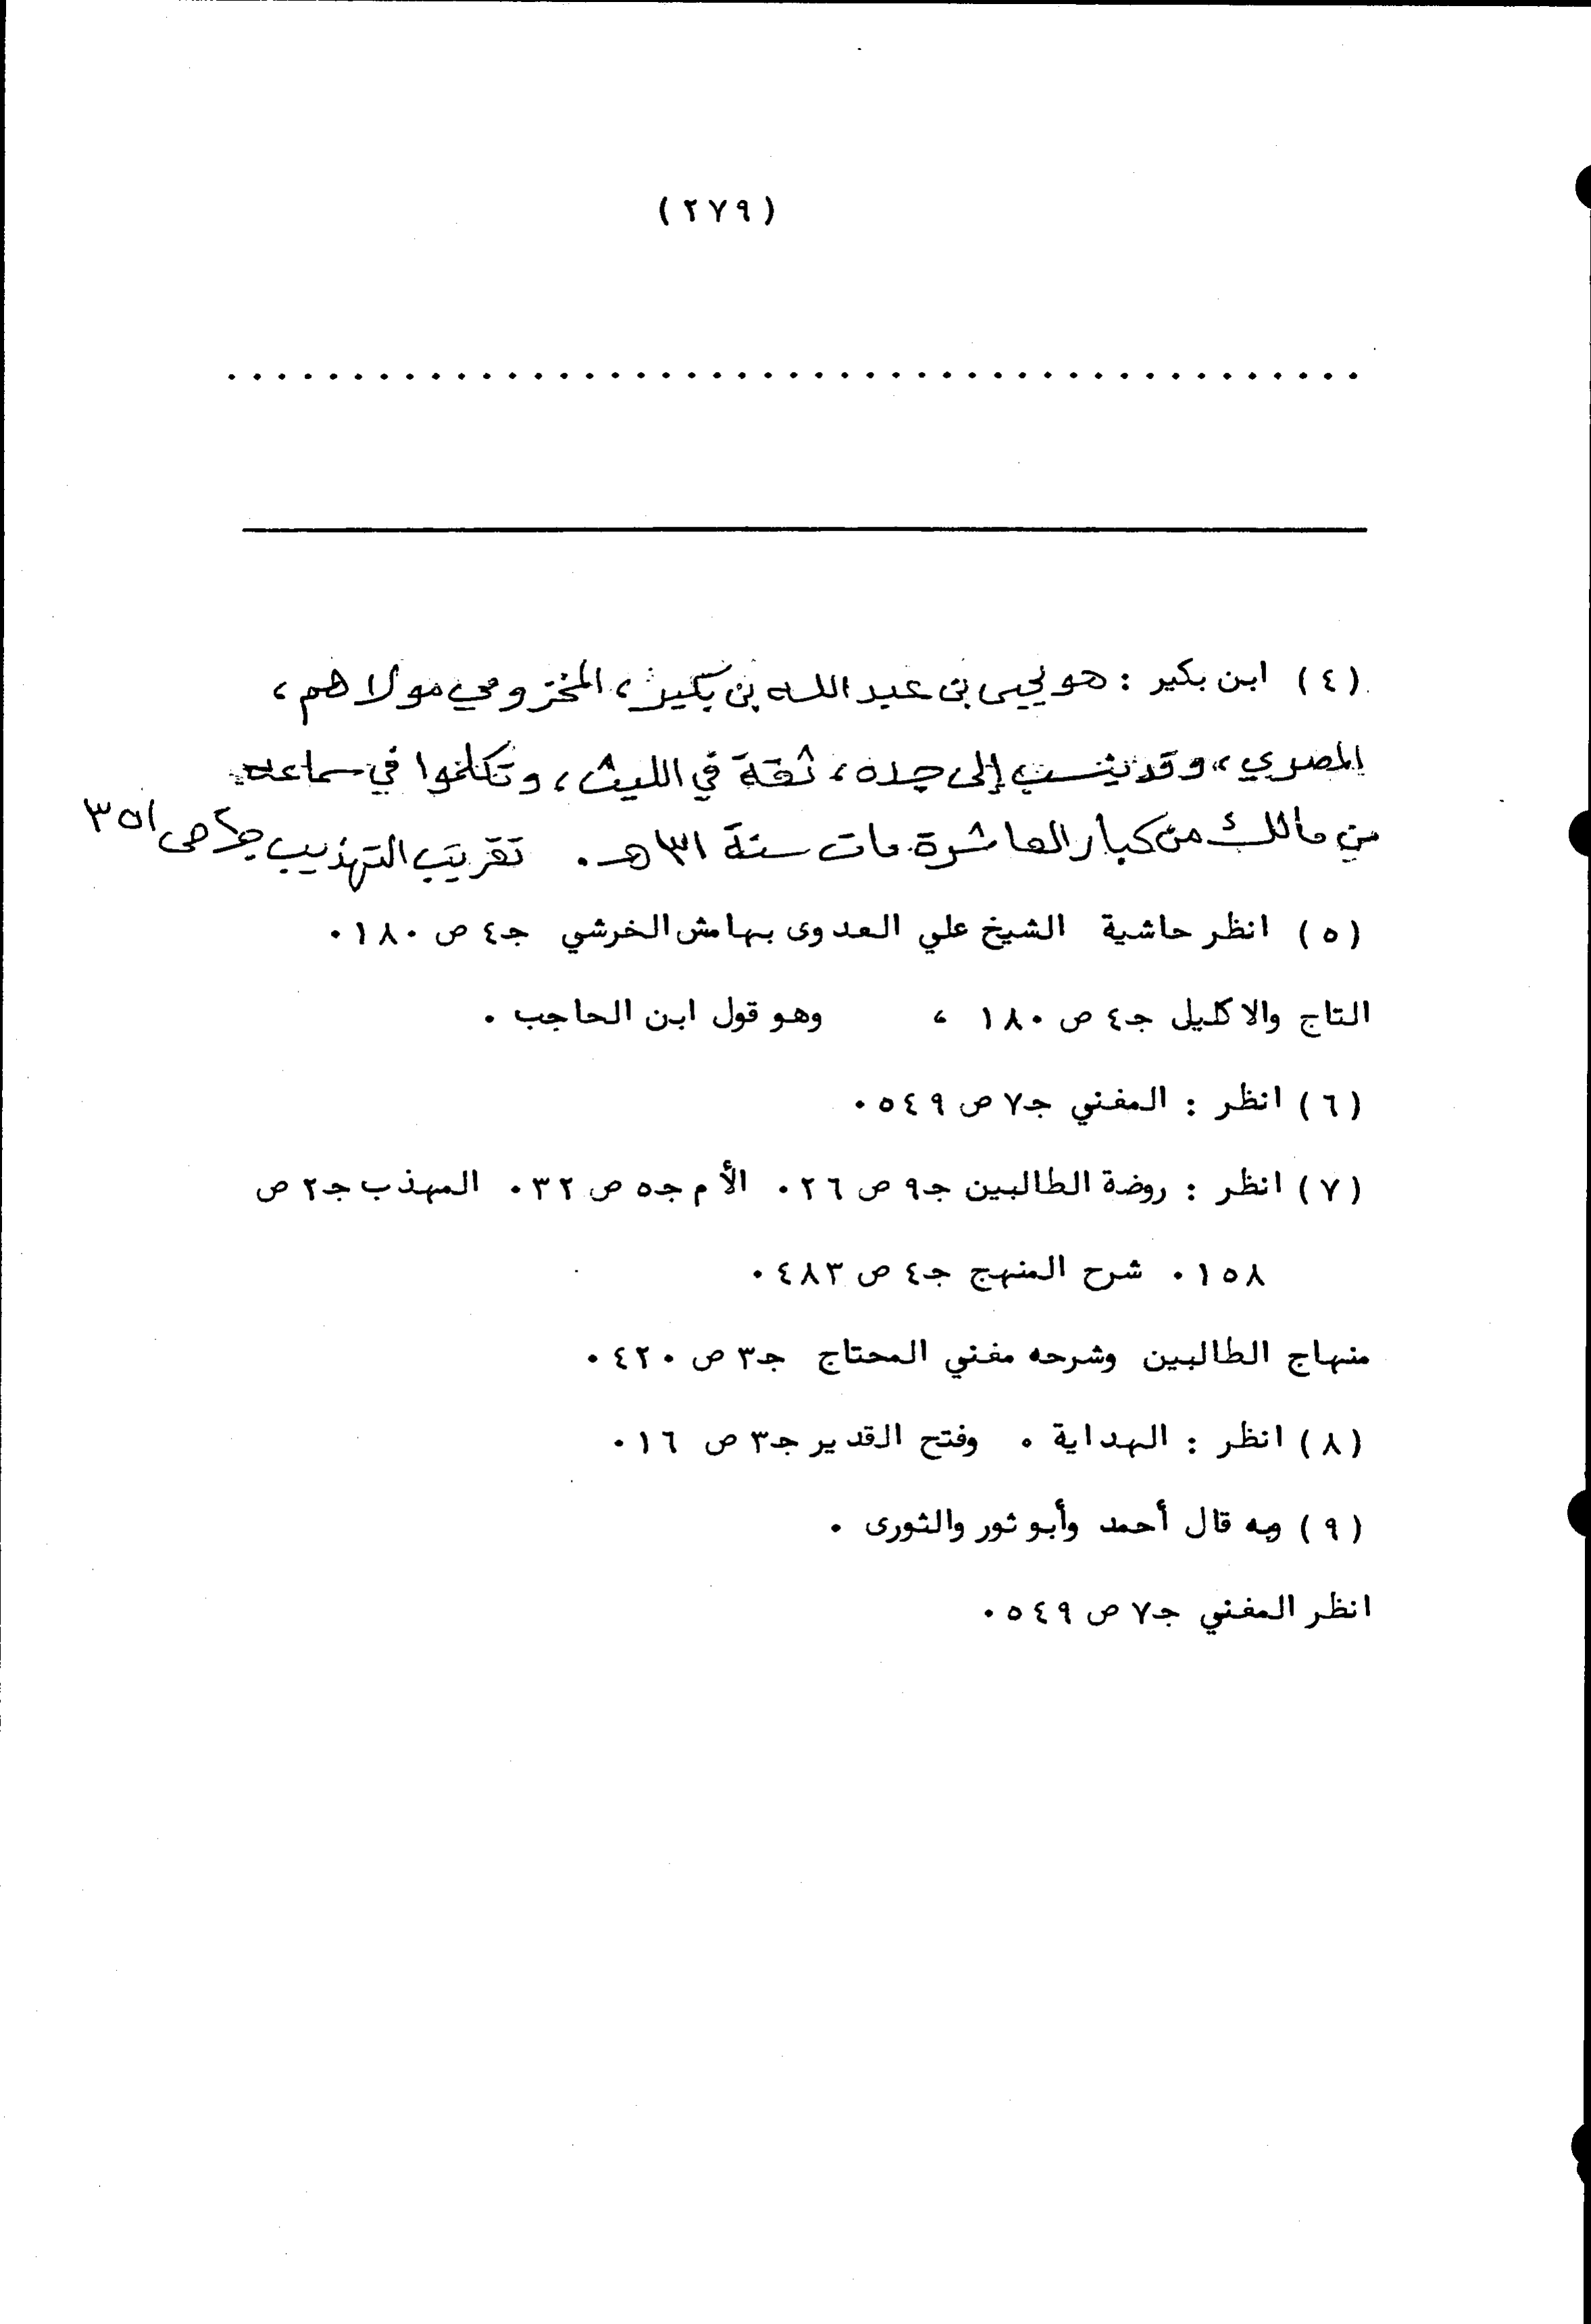 (٢٧٩)
. . . . . . . . . . . . . . . . . . . . . . . . . . . . . . . . . . . . . . . . . . . . .
(٤) ابن بكير : هو يحيى بن عبد الله بن بكير، المخزومي مولاهم،
المصري، وقد ينسب إلى جده، ثقة في الليث، وتكلموا في سماعه
من مالك من كبار العاشرة مات سنة ٣١هـ . تقريب التهذيب جـ٢ ص ٣٥١
(٥) انظر حاشية الشيخ علي العدوى بهامش الخرشي جـ٤ ص ١٨٠.
التاج والاكليل جـ٤ ص ١٨٠ ، وهو قول ابن الحاجب .
(٦) انظر : المغني جـ٧ ص ٥٤٩.
(٧) انظر : روضة الطالبين جـ٩ ص ٢٦. الأم جـ٥ ص ٣٢. المهذب جـ٢ ص
١٥٨. شرح المنهج جـ٤ ص ٤٨٣.
منهاج الطالبين وشرحه مغني المحتاج جـ٣ ص ٤٢٠.
(٨) انظر : الهداية . وفتح القدير جـ٣ ص ١٦.
(٩) وبه قال أحمد وأبو ثور والثورى .
انظر المغني جـ٧ ص ٥٤٩.